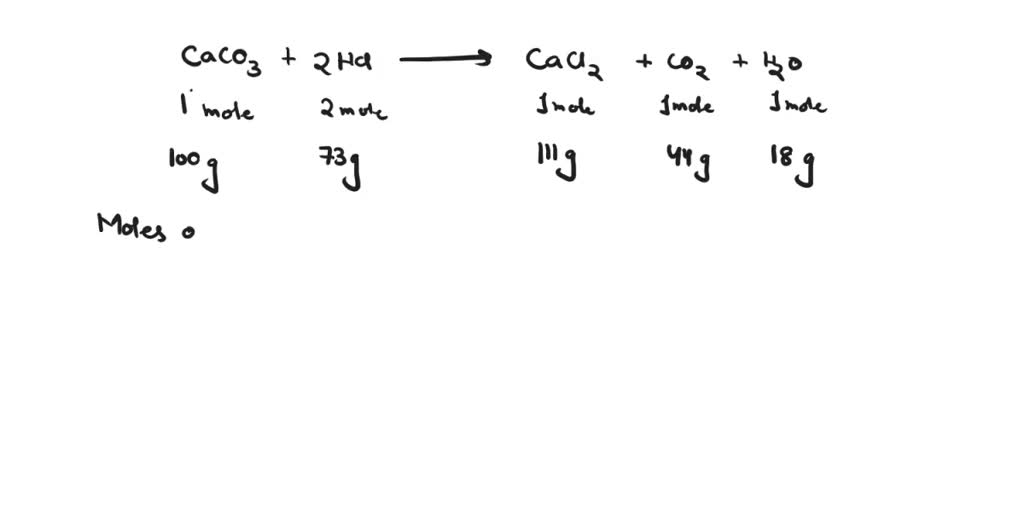 CaCO3 + 2HCl ⟶ CaCl2 + CO2 + H2O
1 mole 2 mole 1 mole 1 mole 1 mole
100g 73g 111g 44g 18g
Moles o